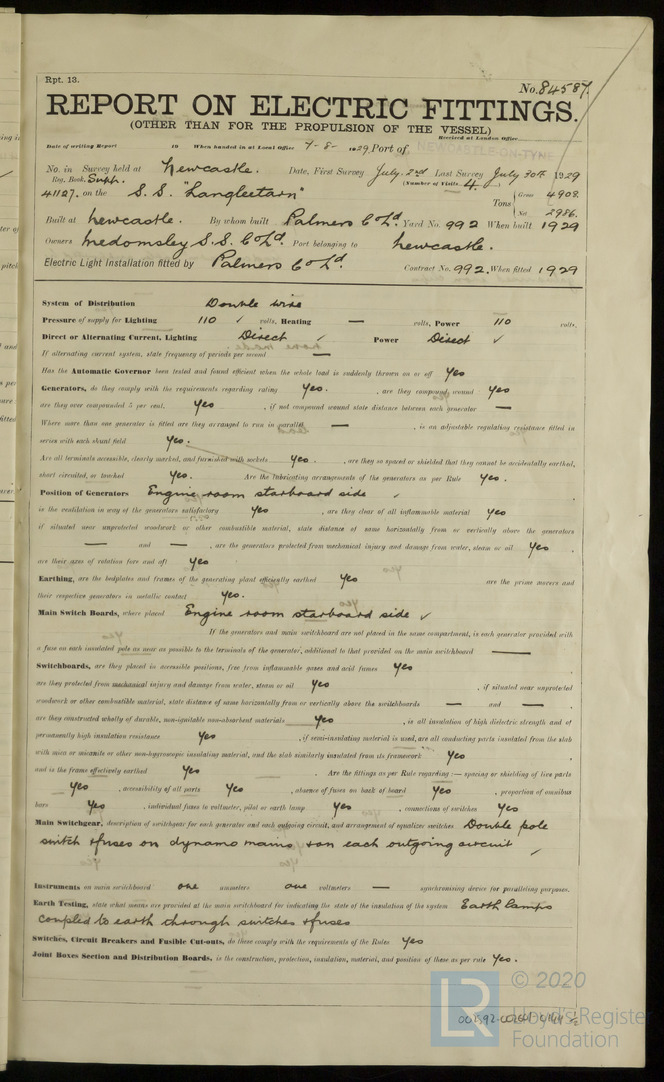 Rpt. 13.
No. 84587.
REPORT ON ELECTRIC FITTINGS.
(OTHER THAN FOR THE PROPULSION OF THE VESSEL)
Received at London Office
Date of writing Report 19 When handed in at Local Office 7-8-1929 Port of NEWCASTLE-ON-TYNE
No. in Survey held at Newcastle. Date, First Survey July. 2nd Last Survey July 30th 1929
Reg. Book. Supp. (Number of Visits 4.)
41127. on the S.S. "Langleetarn" Tons Gross 4908.
Net 2986.
Built at Newcastle. By whom built Palmers Co Ld. Yard No. 992 When built 1929
Owners Medomsley S.S. Co Ld. Port belonging to Newcastle.
Electric Light Installation fitted by Palmers Co Ld. Contract No. 992. When fitted 1929
System of Distribution Double wire
Pressure of supply for Lighting 110 ✓ volts, Heating — volts, Power 110 volts.
Direct or Alternating Current, Lighting Direct ✓ Power Direct ✓
If alternating current system, state frequency of periods per second —
Has the Automatic Governor been tested and found efficient when the whole load is suddenly thrown on or off Yes
Generators, do they comply with the requirements regarding rating Yes. , are they compound wound Yes
are they over compounded 5 per cent. Yes , if not compound wound state distance between each generator —
Where more than one generator is fitted are they arranged to run in parallel — , is an adjustable regulating resistance fitted in
series with each shunt field Yes.
Are all terminals accessible, clearly marked, and furnished with sockets Yes. , are they so spaced or shielded that they cannot be accidentally earthed,
short circuited, or touched Yes. Are the lubricating arrangements of the generators as per Rule Yes.
Position of Generators Engine room starboard side ✓
is the ventilation in way of the generators satisfactory Yes , are they clear of all inflammable material Yes
if situated near unprotected woodwork or other combustible material, state distance of same horizontally from or vertically above the generators
— and — , are the generators protected from mechanical injury and damage from water, steam or oil Yes
are their axes of rotation fore and aft Yes
Earthing, are the bedplates and frames of the generating plant efficiently earthed Yes are the prime movers and
their respective generators in metallic contact Yes.
Main Switch Boards, where placed Engine room starboard side ✓
If the generators and main switchboard are not placed in the same compartment, is each generator provided with
a fuse on each insulated pole as near as possible to the terminals of the generator, additional to that provided on the main switchboard —
Switchboards, are they placed in accessible positions, free from inflammable gases and acid fumes Yes
are they protected from mechanical injury and damage from water, steam or oil Yes , if situated near unprotected
woodwork or other combustible material, state distance of same horizontally from or vertically above the switchboards — and —
are they constructed wholly of durable, non-ignitable non-absorbent materials Yes , is all insulation of high dielectric strength and of
permanently high insulation resistance Yes , if semi-insulating material is used, are all conducting parts insulated from the slab
with mica or micanite or other non-hygroscopic insulating material, and the slab similarly insulated from its framework Yes
and is the frame effectively earthed Yes . Are the fittings as per Rule regarding :— spacing or shielding of live parts
Yes , accessibility of all parts Yes , absence of fuses on back of board Yes , proportion of omnibus
bars Yes , individual fuses to voltmeter, pilot or earth lamp Yes , connections of switches Yes
Main Switchgear, description of switchgear for each generator and each outgoing circuit, and arrangement of equalizer switches Double pole
switch & fuses on dynamo mains & on each outgoing circuit ✓
Instruments on main switchboard one ammeters one voltmeters — synchronising device for paralleling purposes.
Earth Testing, state what means are provided at the main switchboard for indicating the state of the insulation of the system Earth lamps
coupled to earth through switches & fuses
Switches, Circuit Breakers and Fusible Cut-outs, do these comply with the requirements of the Rules Yes
Joint Boxes Section and Distribution Boards, is the construction, protection, insulation, material, and position of these as per rule Yes.
© 2020
Lloyd's Register
Foundation